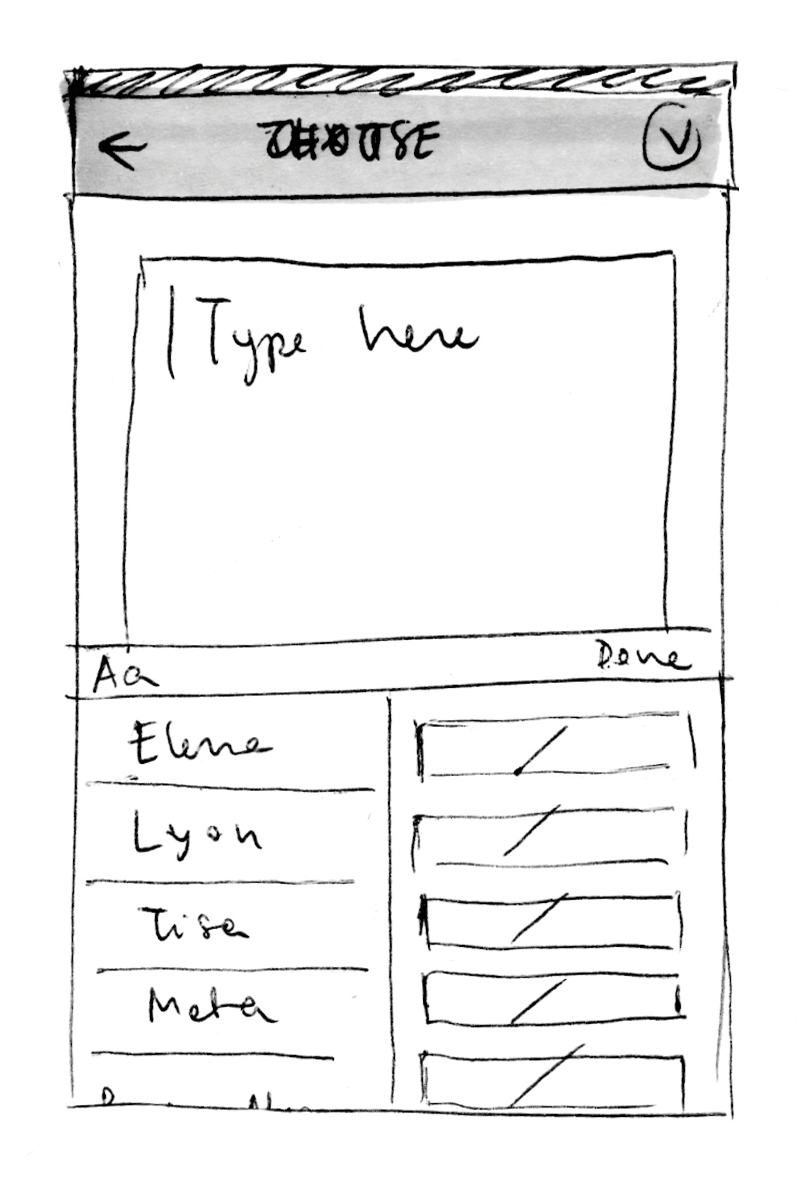 CHOOSE
Type here
Aa Done
Elena
Lyon
Tisa
Meta